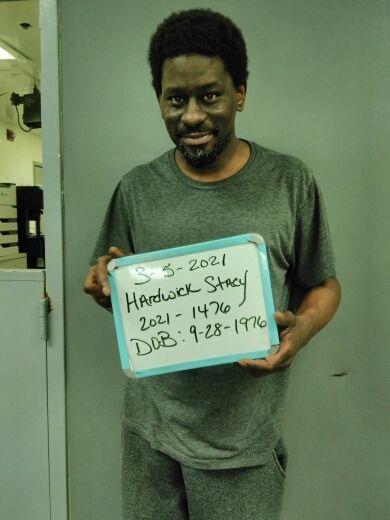 3-5-2021
Hardwick Stacy
2021-1476
DOB: 9-28-1976